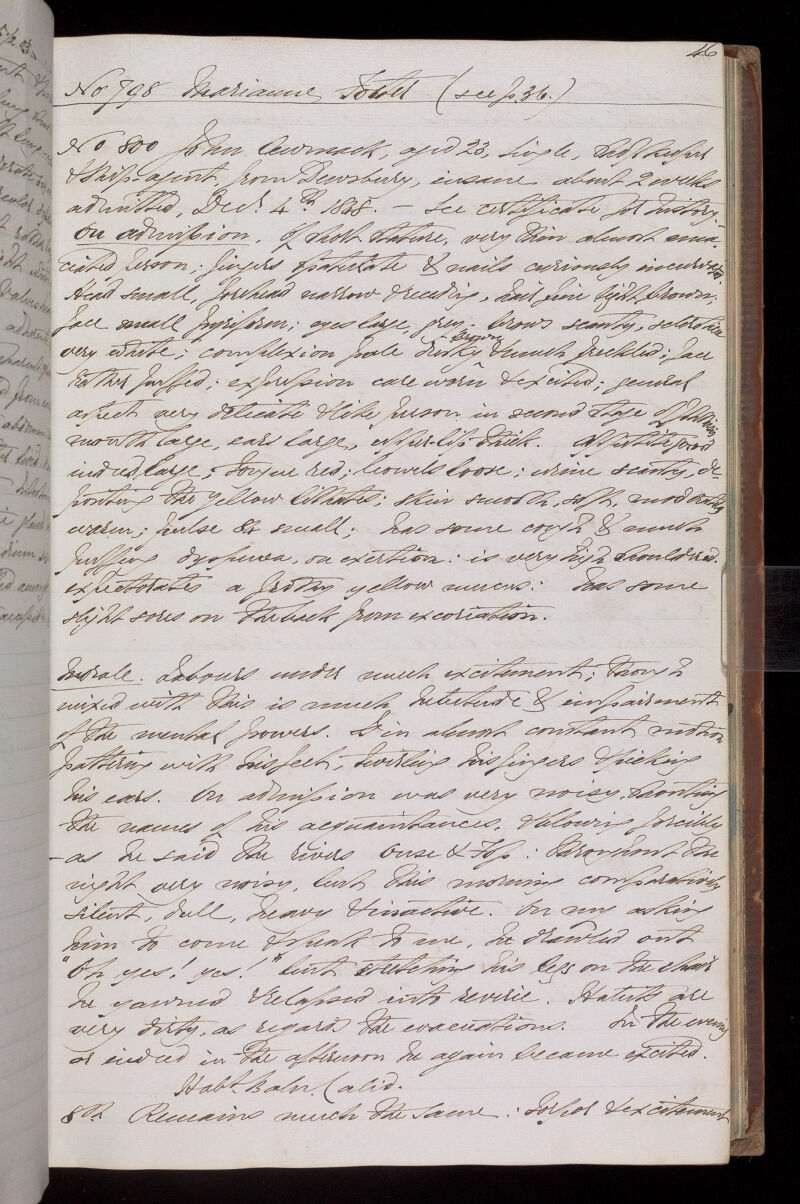 46
No 798 Marianne (see p. 36.)
No 800 John Cormack, aged 23, single,
& Ship agent, from Dewsbury, insane about 2 weeks
admitted, Decr. 4th 1848. — See certificate for history. —
On admission. Of short stature, very thin almost ema-
ciated person; fingers spatulate & nails curiously incurvated.
Head small, forehead narrow & receding, hair fine light brown.
face small pyriform; eyes large, grey. brows scanty, sclerotica
very white; complexion pale dusky brown & much freckled; face
rather puffed; expression care worn & excited; general
aspect very delicate & like person in second stage of Phthisis
mouth large, ears large, upper lip thick. Appetite good
indeed large; tongue red; bowels loose; urine scanty, de-
positing the yellow lithates; skin smooth, soft, moderately
warm; pulse 84 small; has some cough & much
puffing dyspnoea, on exertion: is very high shouldered.
expectorates a frothy yellow mucus: has some
slight sores on the back from excoriation.
Morale. Labours under much excitement; though
mixed with this is much hebetude & impairment
of the mental powers. Is in almost constant motion
pattering with his feet, twirling his fingers & picking
his ears. On admission was very noisy, shouting
the names of his acquaintances, & blowing forcibly
– as he said the rivers Ouse & Foss: throughout the
night very noisy, but this morning comparatively
silent, dull, heavy & inactive. On my asking
him to come & speak to me, he drawled out
"Oh yes! yes!" but stretching his legs on the chair
he yawned & relapsed into reverie. Habits are
very dirty, as regard the evacuations. In the evening
or indeed in the afternoon he again became excited.
Habt. Baln. Calid.
8th Remains much the same: torpor & excitement